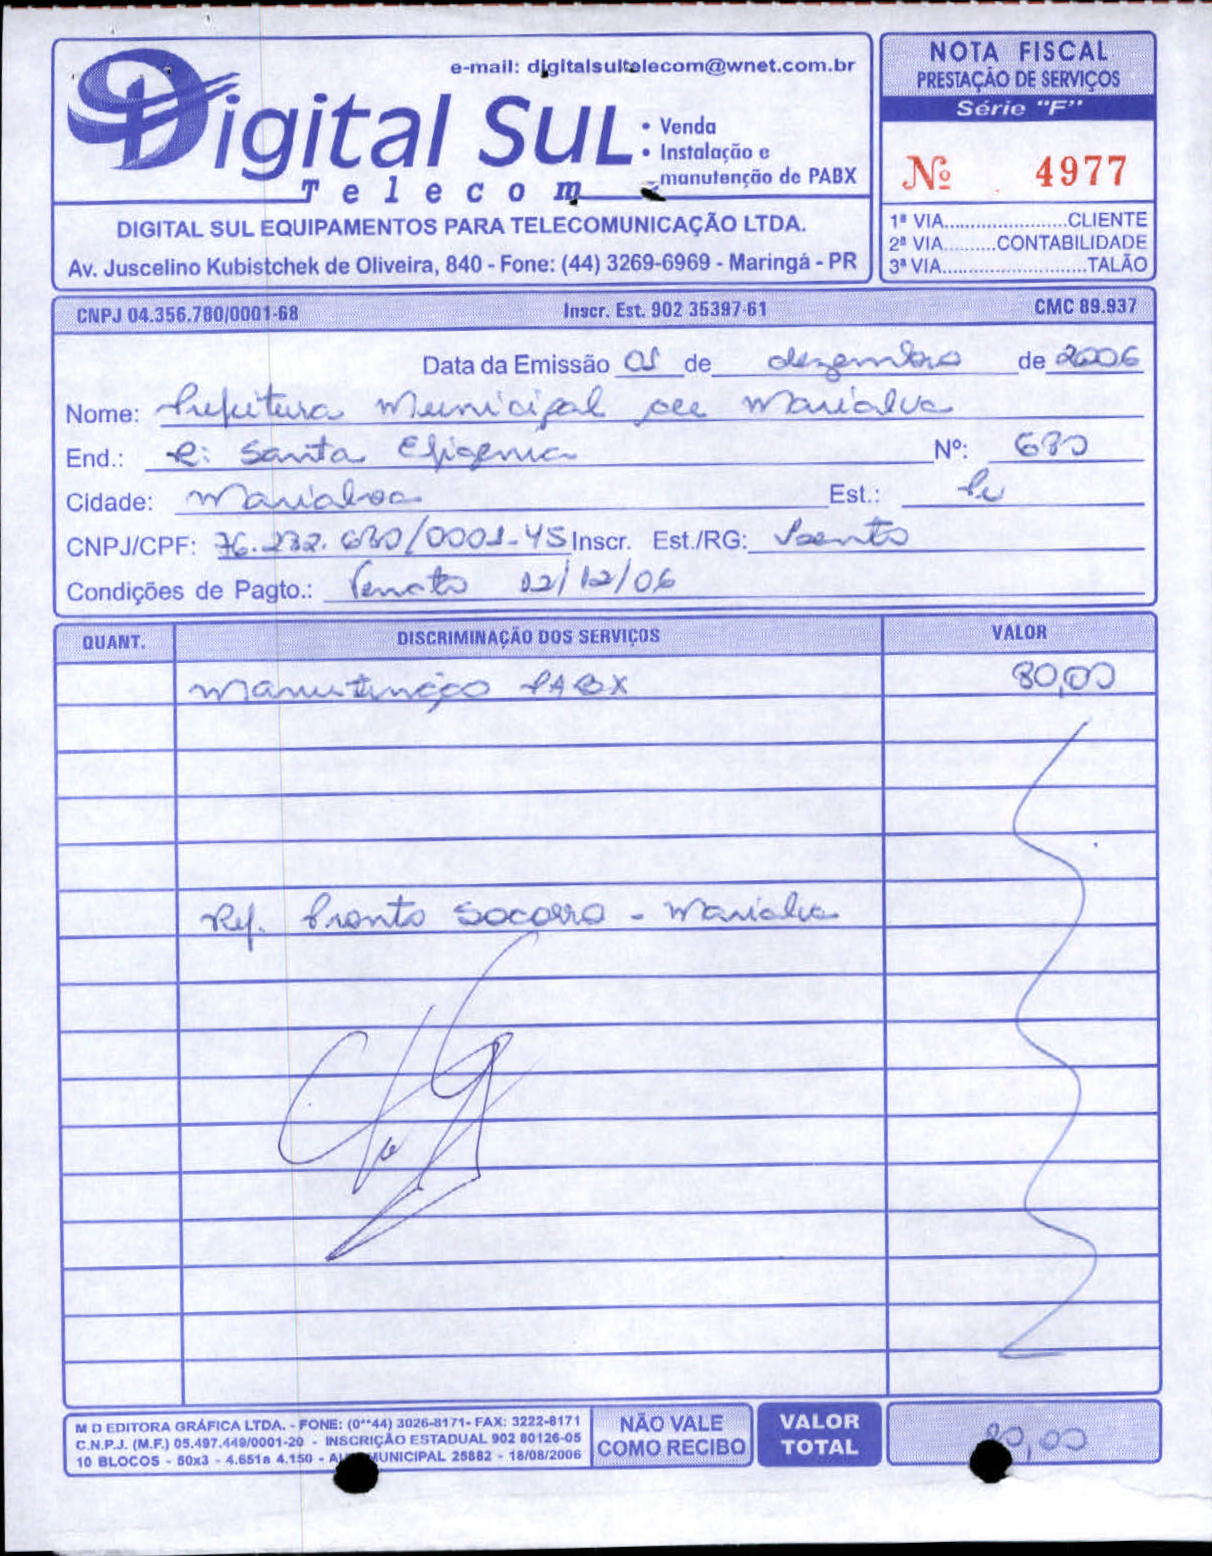 e-mail: digitalsultelecom@wnet.com.br
Digital SUL
Telecom
• Venda
• Instalação e
manutenção de PABX
DIGITAL SUL EQUIPAMENTOS PARA TELECOMUNICAÇÃO LTDA.
Av. Juscelino Kubistchek de Oliveira, 840 - Fone: (44) 3269-6969 - Maringá - PR
NOTA FISCAL
PRESTAÇÃO DE SERVIÇOS
Série "F"
Nº 4977
1ª VIA.......................CLIENTE
2ª VIA..........CONTABILIDADE
3ª VIA............................TALÃO
CNPJ 04.356.780/0001-68 Inscr. Est. 902 35397-61 CMC 89.937
Data da Emissão de dezembro de 2006
Nome: Prefeitura Municipal de Marialva
End.: R: Santa Efigenia Nº: 680
Cidade: Marialva Est.: Pr
CNPJ/CPF: 76.282.680/0001-45 Inscr. Est./RG: Isento
Condições de Pagto.: Vencto 12/12/06
QUANT. DISCRIMINAÇÃO DOS SERVIÇOS VALOR
Manutenção PABX 80,00
Ref. Pronto Socorro - Marialva
M D EDITORA GRÁFICA LTDA. - FONE: (0**44) 3026-8171- FAX: 3222-8171
C.N.P.J. (M.F.) 05.497.449/0001-20 - INSCRIÇÃO ESTADUAL 902 80126-05
10 BLOCOS - 50x3 - 4.651a 4.150 - MUNICIPAL 25882 - 18/08/2006
NÃO VALE
COMO RECIBO
VALOR
TOTAL
80,00